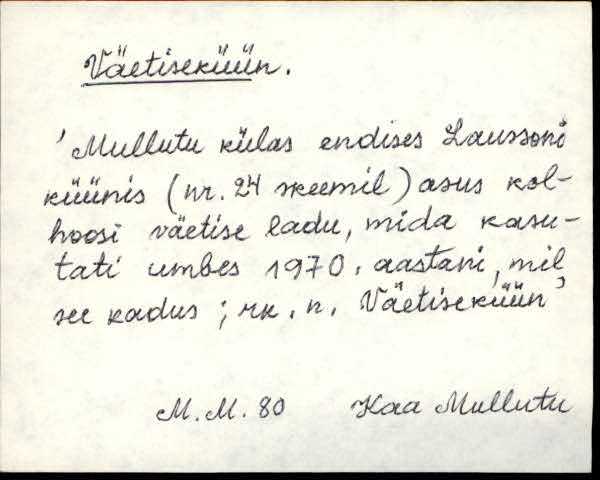 Väetiseküün.
'Mullutu külas endises Laussoni
küünis (nr. 24 skeemil) asus kol-
hoosi väetise ladu, mida kasu-
tati umbes 1970. aastani, mil
see kadus; rk. n. Väetiseküün'
M. M. 80 Kaa Mullutu